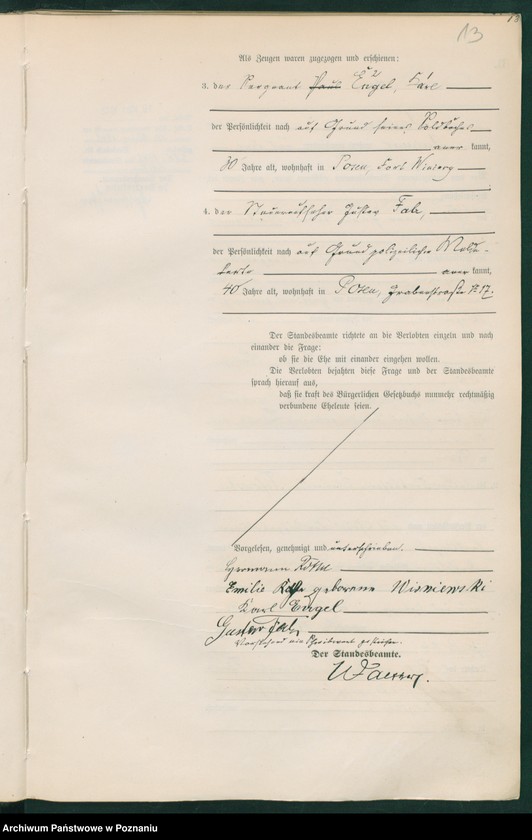 13
Als Zeugen waren zugezogen und erschienen:
3. der Sergeant Paul Engel, Karl
der Persönlichkeit nach auf Grund seines Soldbuches
aner kannt,
30 Jahre alt, wohnhaft in Posen, Fort Winiary
4. der Gustav Falz,
der Persönlichkeit nach auf Grund polizeilicher Melde-
karte aner kannt,
40 Jahre alt, wohnhaft in Posen, Grabenstraße № 17.
Der Standesbeamte richtete an die Verlobten einzeln und nach
einander die Frage:
ob sie die Ehe mit einander eingehen wollen.
Die Verlobten bejahten diese Frage und der Standesbeamte
sprach hierauf aus,
daß sie kraft des Bürgerlichen Gesetzbuchs nunmehr rechtmäßig
verbundene Eheleute seien.
Vorgelesen, genehmigt und unterschrieben.
Hermann
Emilie geborene Wisniewski
Karl Engel
Gustav Falz
Vorstehend ein Schreibwort gestrichen.
Der Standesbeamte.
Archiwum Państwowe w Poznaniu